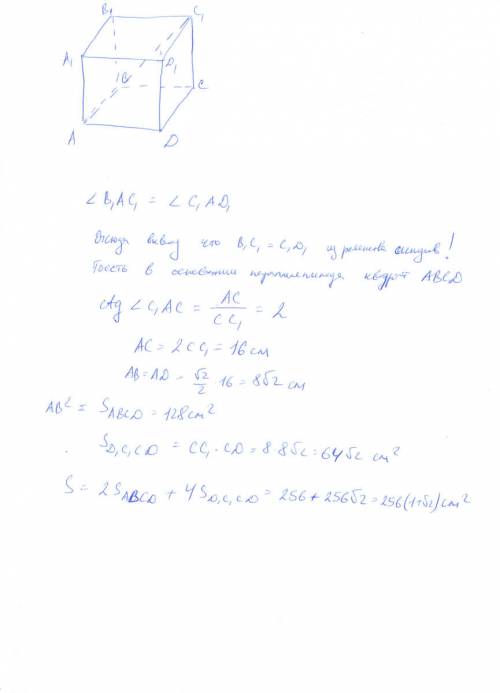 B₁ C₁
A₁ D₁
B C
A D
∠B₁AC₁ = ∠C₁AD₁
Отсюда вывод что B₁C₁ = C₁D₁ из равенства !
Тоесть в основании параллелепипеда квадрат ABCD
ctg ∠C₁AC = AC/CC₁ = 2
AC = 2CC₁ = 16 см
AB = AD = √2/2 · 16 = 8√2 см
AB² = S_ABCD = 128 cm²
S_D₁C₁CD = CC₁ · CD = 8·8√2 = 64√2 cm²
S = 2S_ABCD + 4S_D₁C₁CD = 256 + 256√2 = 256(1+√2) cm²